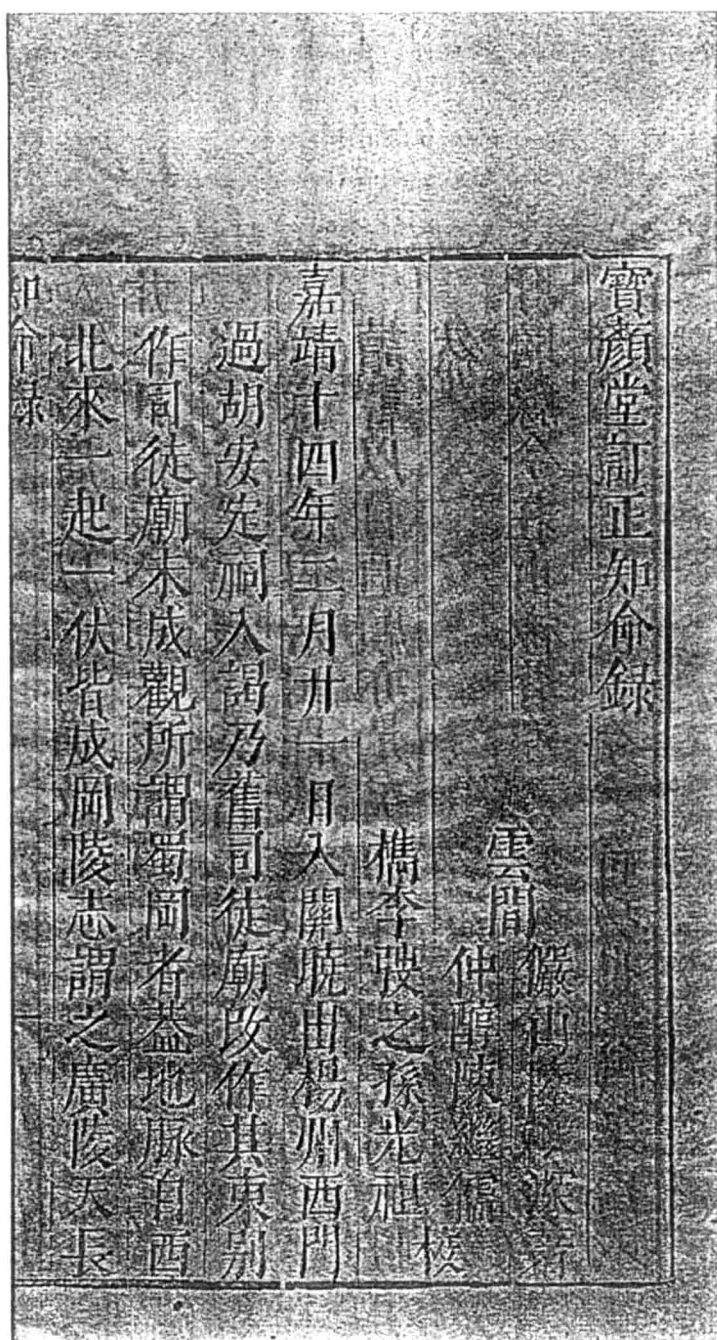 寶顏堂訂正知命錄
雲間
儼山陸深著
仲醇陳繼儒
檇李弢之孫光祖
校
嘉靖十四年三月廿一日入關曉由楊州西門
過胡安定祠入謁乃舊司徒廟改作其東別
作司徒廟未成觀所謂蜀岡者葢地脉自西
北來一起一伏皆成岡陵志謂之廣陵天長
知命錄